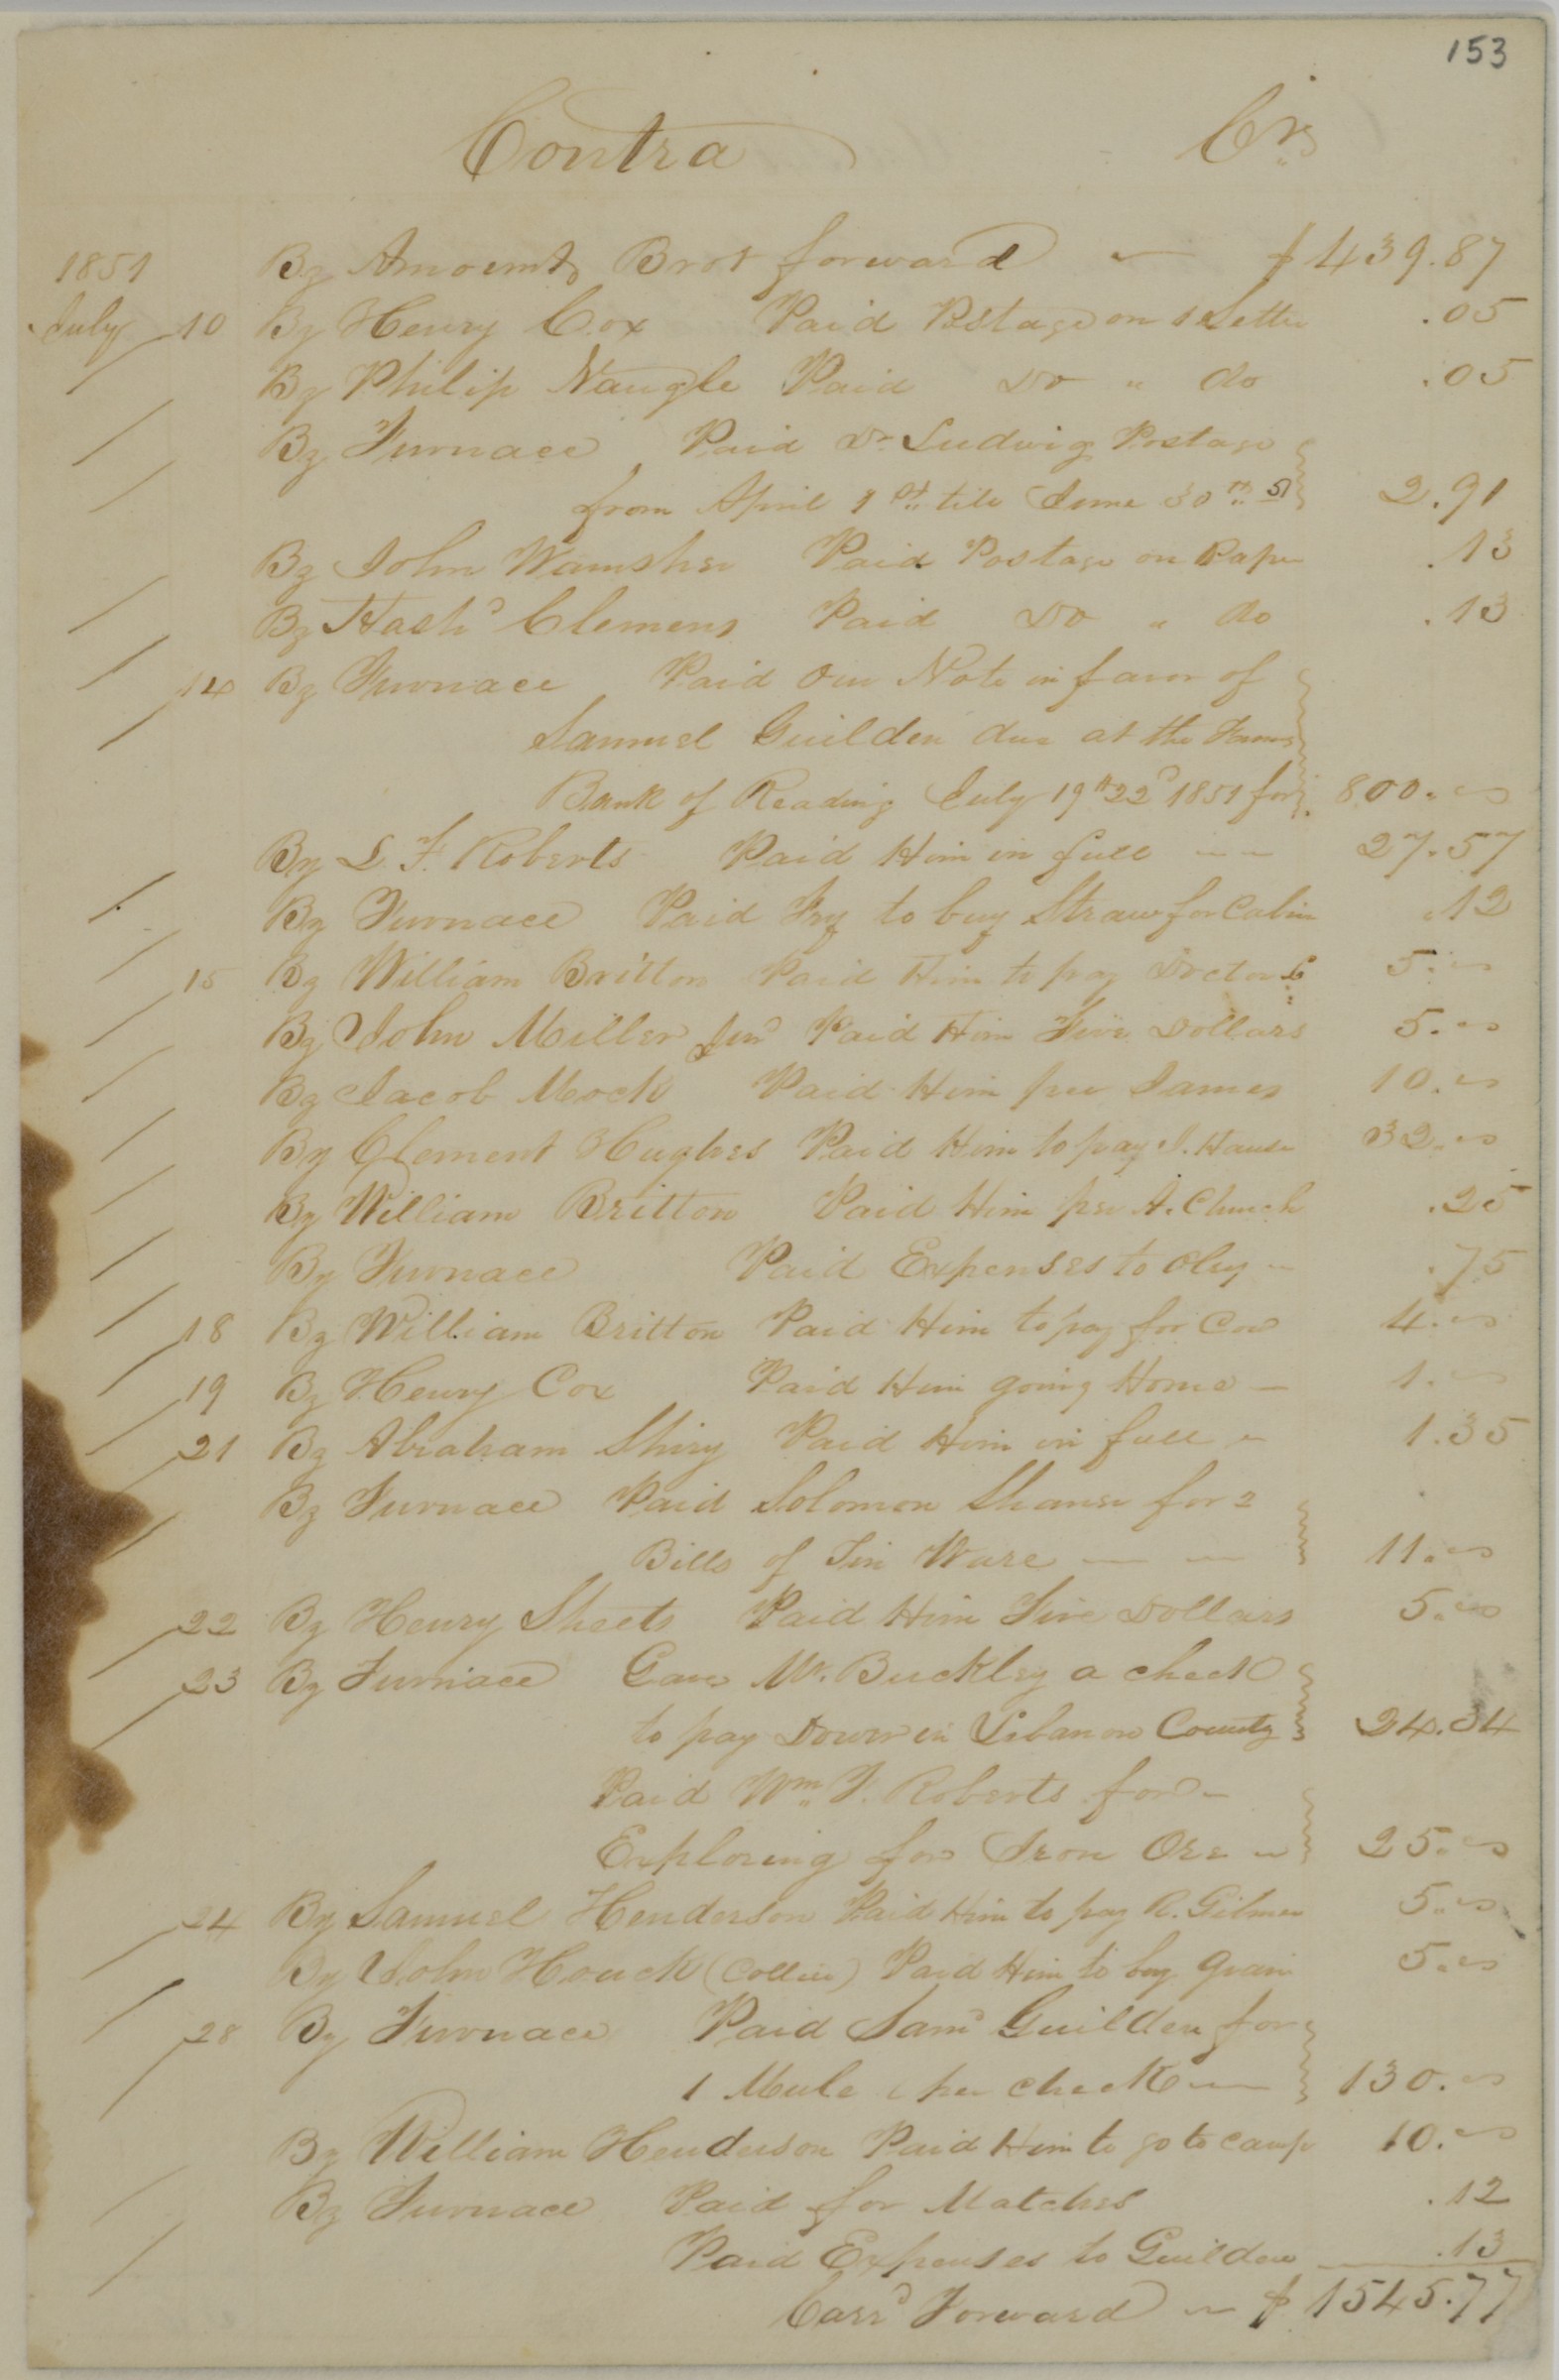 153
Contra Crs
1851 By Amounts Brot forward $439.87
July 10 By Henry Cox Paid Postage on 1 Letter .05
By Philip Naugle Paid Do " do .05
By Furnace Paid Dr Ludwig Postage
from April 1st till June 30th 51 2.91
By John Wamsher Paid Postage on Paper .13
By Hash Clemens Paid Do " do .13
14 By Furnace Paid Our Note in favor of
Samuel Guilden due at the Farmers
Bank of Reading July 19th 22d 1851 for 800.
By L. F. Roberts Paid Him in full 27.57
By Furnace Paid Fry to buy Straw for Cabin .12
15 By William Britton Paid Him to pay Doctor 5.
By John Miller Jun Paid Him Five Dollars 5.
By Jacob Mock Paid Him per James 10.
By Clement Hughes Paid Him to pay J. Hause 32.
By William Britton Paid Him per A. Church .25
By Furnace Paid Expenses to Oley .75
18 By William Britton Paid Him to pay for Cow 4.
19 By Henry Cox Paid Him going Home 1.
21 By Abraham Shiry Paid Him in full 1.35
By Furnace Paid Solomon Shaner for 2
Bills of Tin Ware 11.
22 By Henry Sheets Paid Him Five Dollars 5.
23 By Furnace Gave Mr. Buckley a check
to pay Dower in Libanon County 24.34
Paid Wm F. Roberts for
Exploring for Iron Ore 25.
24 By Samuel Henderson Paid Him to pay R. Gilmer 5.
By John Houck (Collier) Paid Him to buy Grain 5.
28 By Furnace Paid Saml Guilden for
1 Mule per check 130.
By William Henderson Paid Him to go to camp 10.
By Furnace Paid for Matches .12
Paid Expenses to Guilden .13
Carrd Forward $1545.77